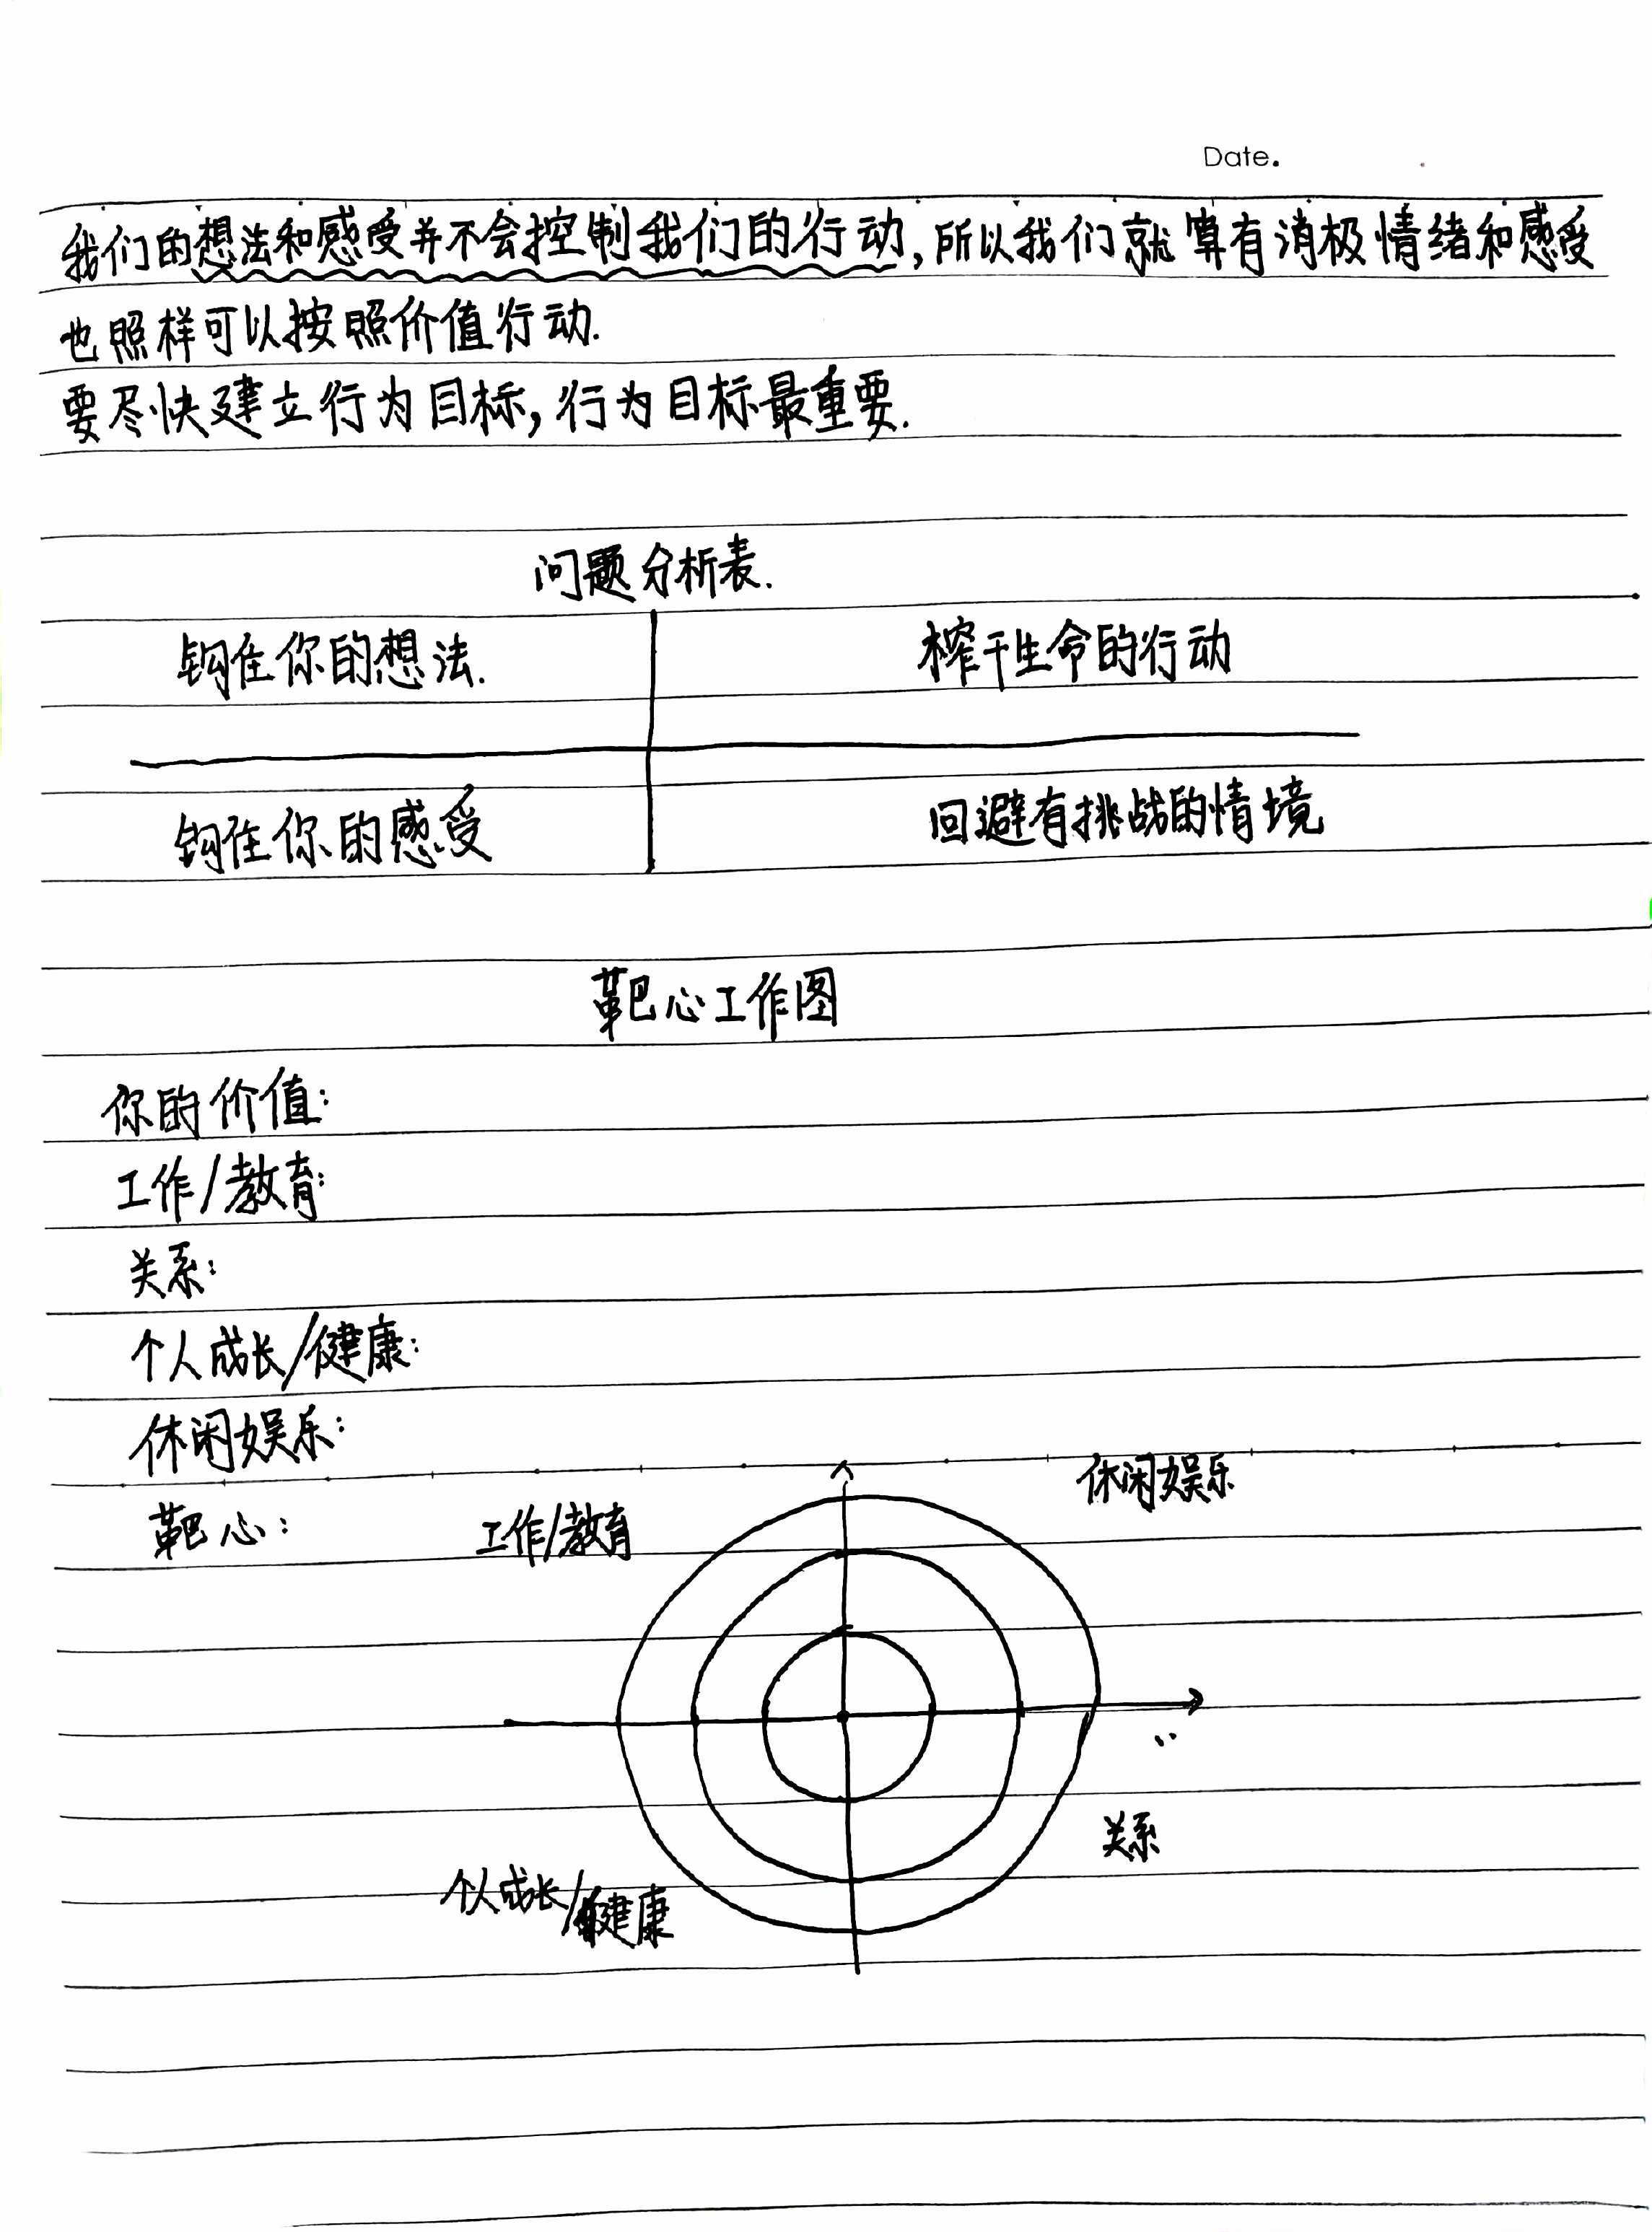 Date.
我们的想法和感受并不会控制我们的行动,所以我们就算有消极情绪和感受
也照样可以按照价值行动.
要尽快建立行为目标,行为目标最重要.
问题分析表.
钩住你的想法.
榨干生命的行动
钩住你的感受
回避有挑战的情境
靶心工作图
你的价值:
工作/教育:
关系:
个人成长/健康:
休闲娱乐:
休闲娱乐
靶心:
工作/教育
关系
个人成长/健康